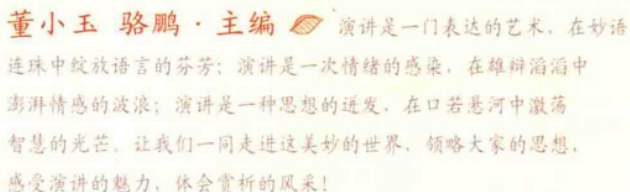 董小玉 骆鹏·主编 演讲是一门表达的艺术，在妙语
连珠中绽放语言的芬芳；演讲是一次情绪的感染，在雄辩滔滔中
澎湃情感的波浪；演讲是一种思想的迸发，在口若悬河中激荡
智慧的光芒。让我们一同走进这美妙的世界，领略大家的思想，
感受演讲的魅力，体会赏析的风采！